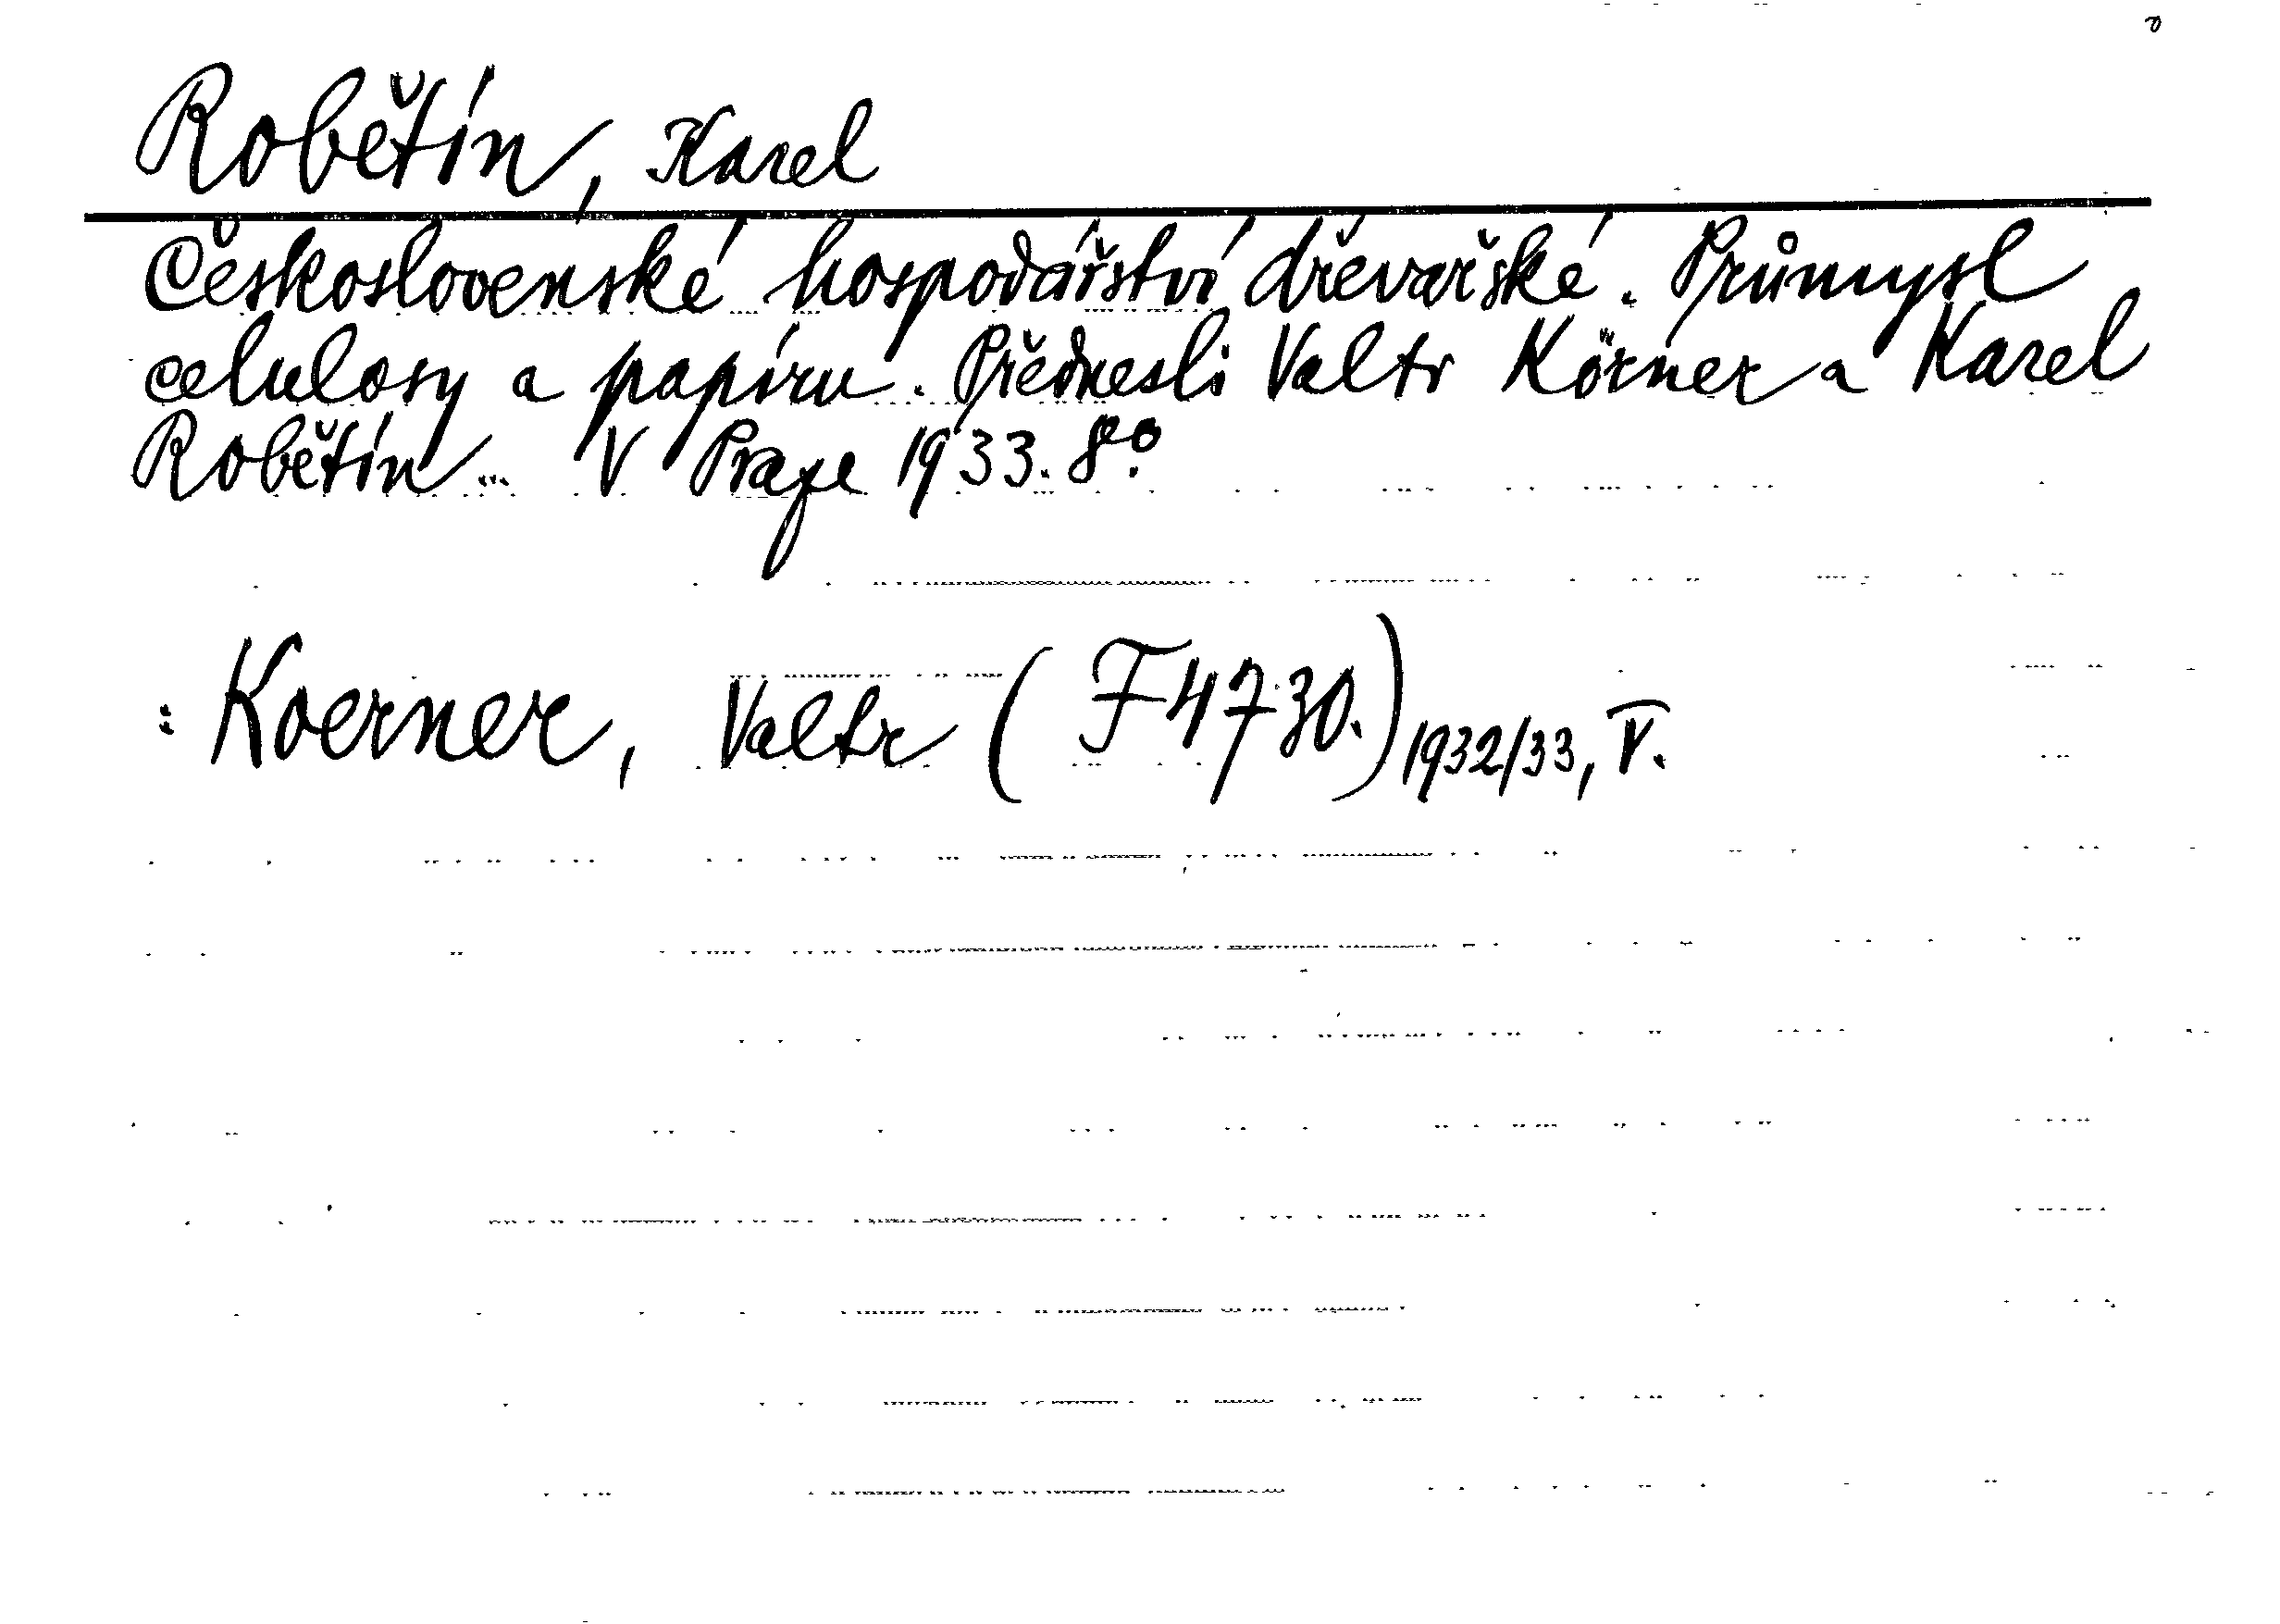 Robětín, Karel
Československé hospodářství dřevařské. Průmysl
celulosy a papíru. Přednesli Valtr Körner a Karel
Robětín... V Praze 1933. 8°.
: Koerner, Valtr (F 4730.) 1932/33, V.